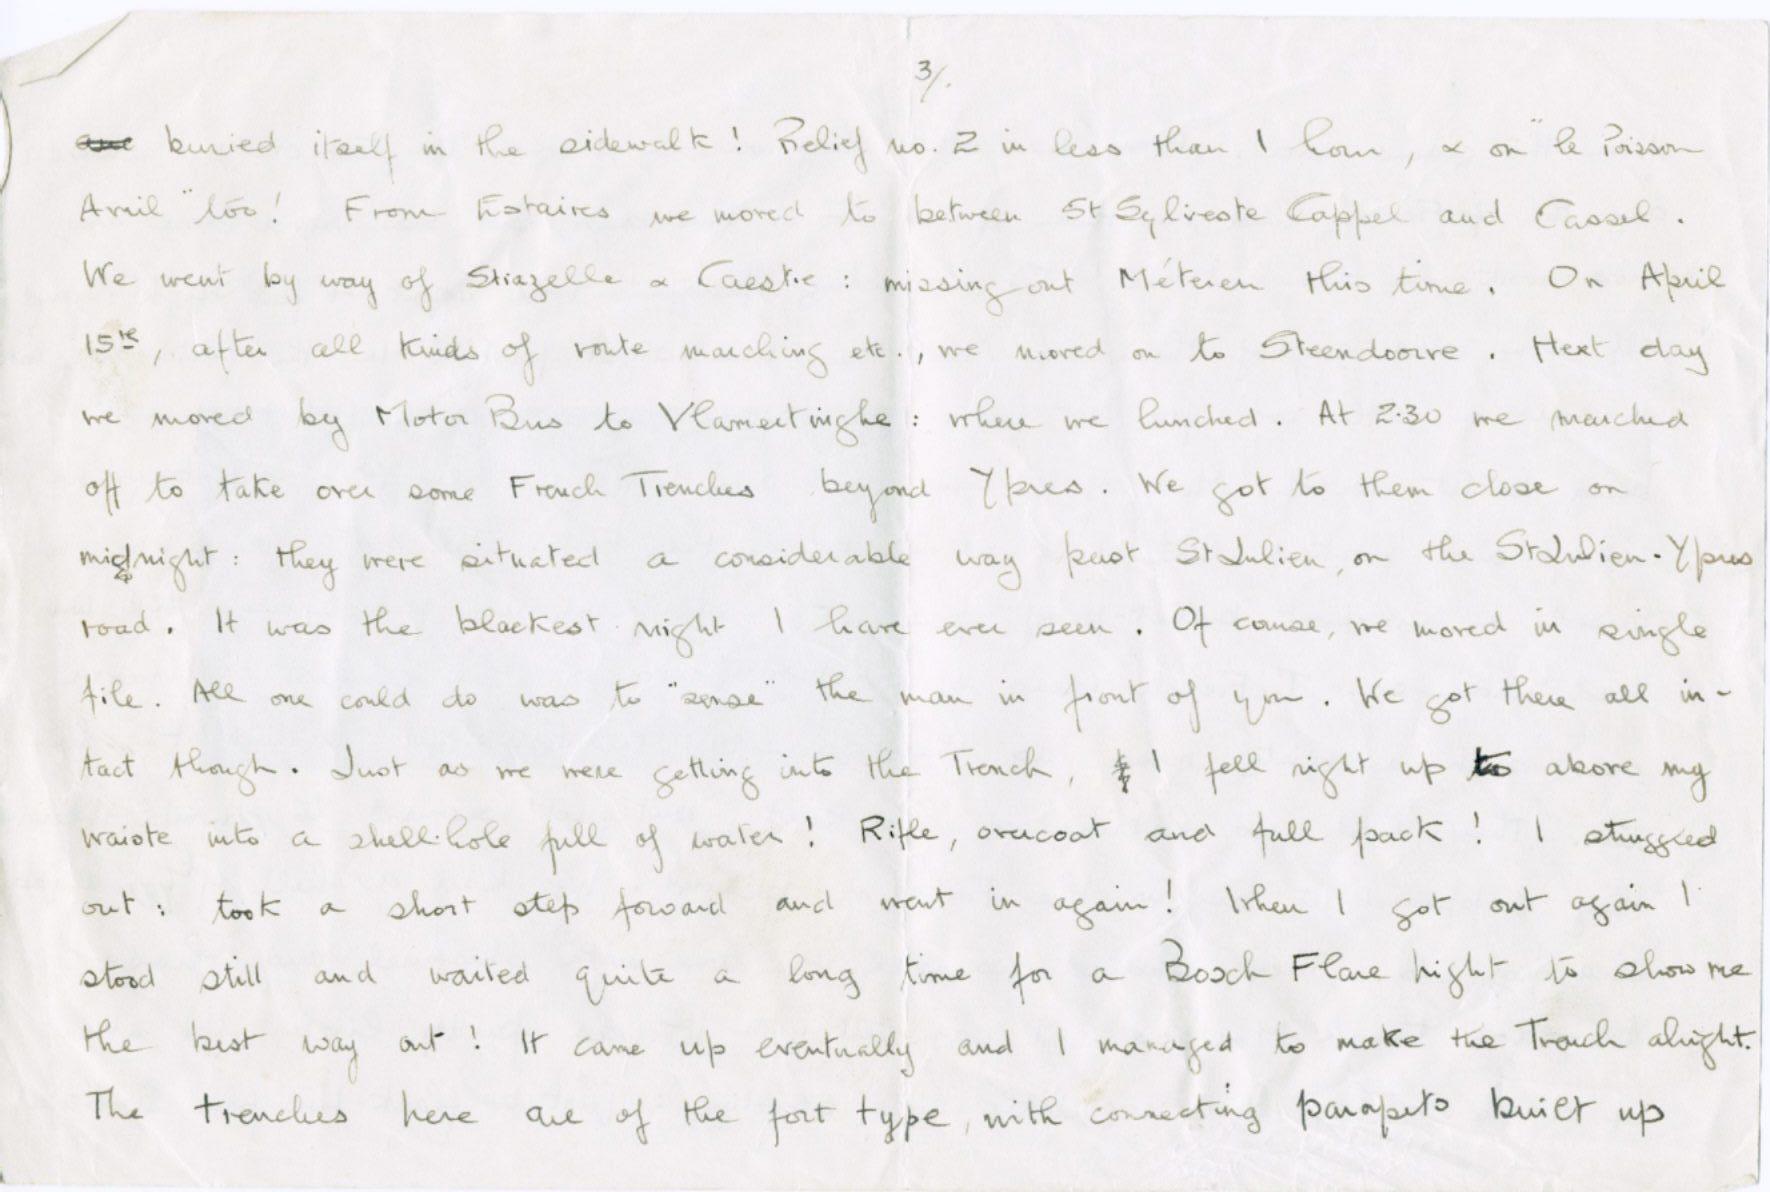 3/.
buried itself in the sidewalk! Relief no. 2 in less than 1 hour, & on "le Poisson
Avril" too! From Estaires we moved to between St Sylveste Cappel and Cassel.
We went by way of Strazelle & Caestre: missing out Méteren this time. On April
15th, after all kinds of route marching etc., we moved on to Steendoorve. Next day
we moved by Motor Bus to Vlamertinghe: where we lunched. At 2.30 we marched
off to take over some French Trenches beyond Ypres. We got to them close on
midnight: they were situated a considerable way past St Julien, on the St Julien-Ypres
road. It was the blackest night I have ever seen. Of course, we moved in single
file. All one could do was to "sense" the man in front of you. We got there all in-
tact though. Just as we were getting into the Trench, I fell right up to above my
waiste into a shell-hole full of water! Rifle, overcoat and full pack! I struggled
out: took a short step forward and went in again! When I got out again I
stood still and waited quite a long time for a Bosch Flare light to show me
the best way out! It came up eventually and I managed to make the Trench alright.
The trenches here are of the fort type, with connecting parapets built up